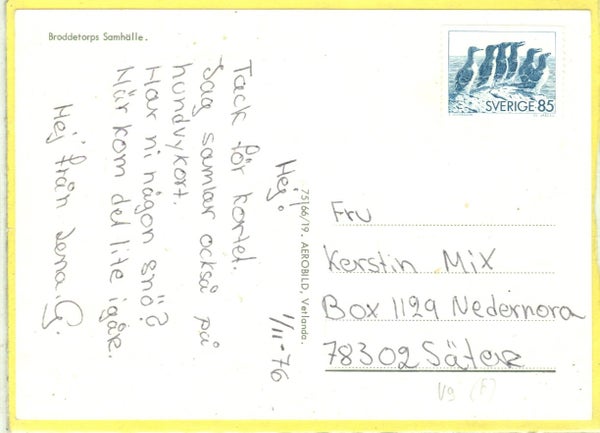 Broddetorps Samhälle.
1/11-76
Hej!
Tack för kortet.
Jag samlar också på
hundvykort.
Har ni någon snö?
När kom det lite igår.
Hej från Lena G.
75|66/19. AEROBILD, Vetlanda.
SVERIGE 85
Fru
Kerstin Mix
Box 1129 Nedernora
78302 Säter